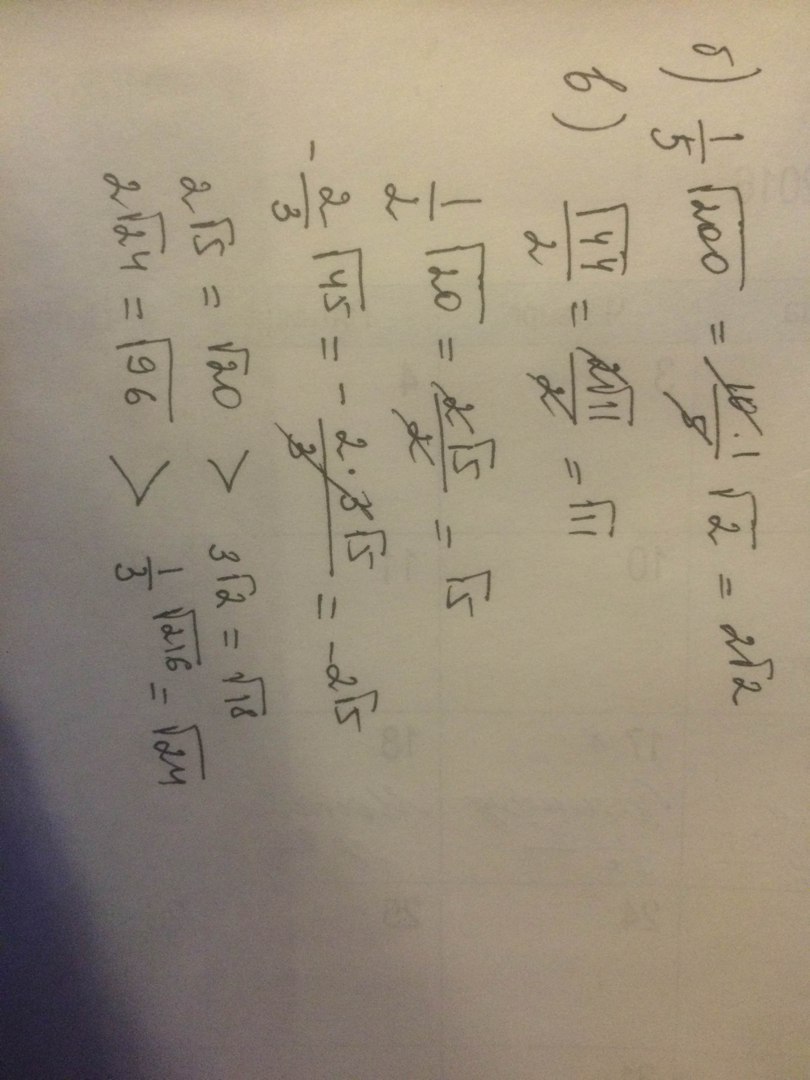 б) 1/5 √200 = 10·1/5 √2 = 2√2
в) √44/2 = 2√11/2 = √11
1/2 √20 = 2√5/2 = √5
-2/3 √45 = - 2·3√5/3 = -2√5
2√5 = √20 > 3√2 = √18
2√24 = √96 > 1/3 √216 = √24